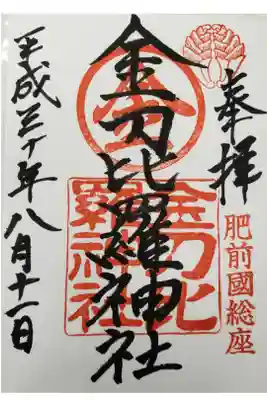 奉拝
肥前國総座
金刀比羅神社
金刀比
羅神社
平成三十年八月十一日